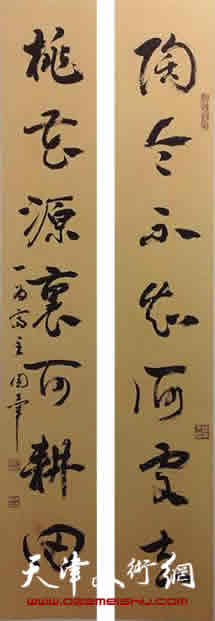 陶令不知何處去
桃花源裏可耕田
天津美術網
www.022meishu.com